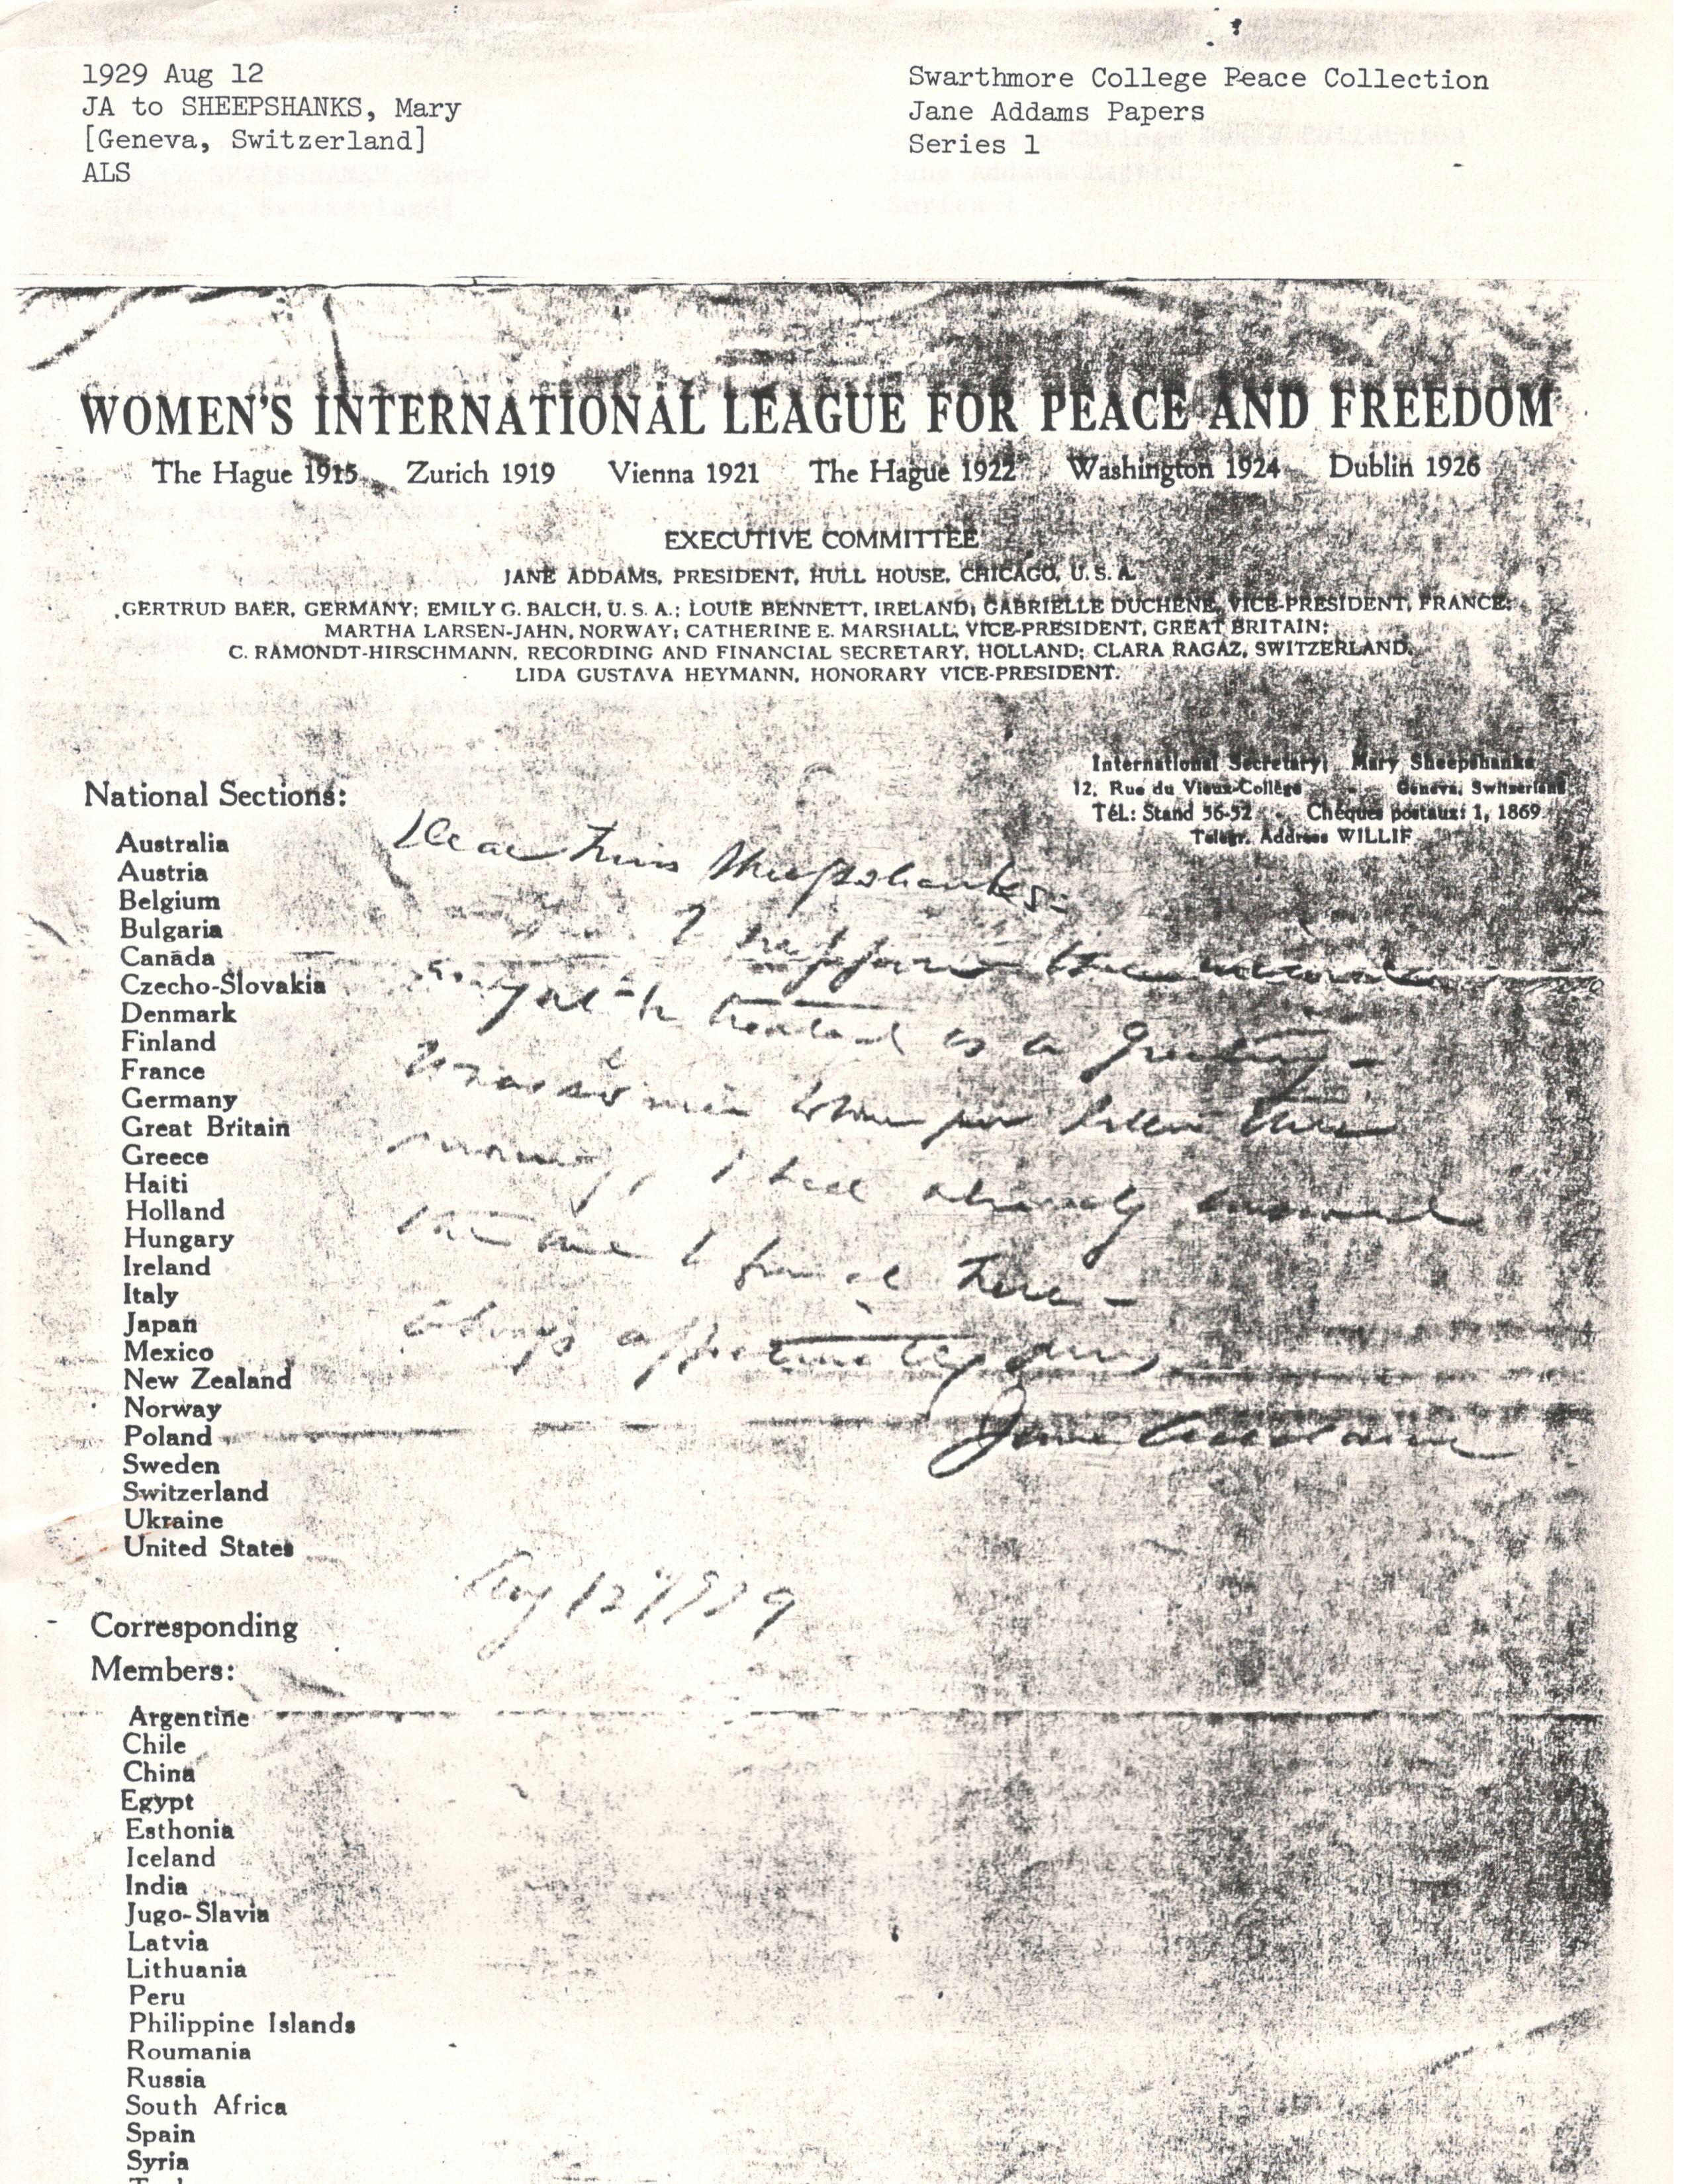 1929 Aug 12
JA to SHEEPSHANKS, Mary
[Geneva, Switzerland]
ALS
Swarthmore College Peace Collection
Jane Addams Papers
Series 1
WOMEN'S INTERNATIONAL LEAGUE FOR PEACE AND FREEDOM
The Hague 1915 Zurich 1919 Vienna 1921 The Hague 1922 Washington 1924 Dublin 1926
EXECUTIVE COMMITTEE
JANE ADDAMS, PRESIDENT, HULL HOUSE, CHICAGO, U. S. A.
GERTRUD BAER, GERMANY; EMILY G. BALCH, U. S. A.; LOUIE BENNETT, IRELAND; GABRIELLE DUCHENE, VICE-PRESIDENT, FRANCE;
MARTHA LARSEN-JAHN, NORWAY; CATHERINE E. MARSHALL, VICE-PRESIDENT, GREAT BRITAIN;
C. RAMONDT-HIRSCHMANN, RECORDING AND FINANCIAL SECRETARY, HOLLAND; CLARA RAGAZ, SWITZERLAND.
LIDA GUSTAVA HEYMANN, HONORARY VICE-PRESIDENT.
International Secretary: Mary Sheepshanks
12, Rue du Vieux-Collège Geneva, Switzerland
Tél.: Stand 56-52 Chèques postaux: 1, 1869
Telegr. Address WILLIF
Dear Miss Sheepshanks-
I suppose the
treated as a greeting-
your letter this
morning, I had already answered
the one I found here-
always affectionately yours
Jane Addams
Aug 12" 1929
National Sections:
Australia
Austria
Belgium
Bulgaria
Canada
Czecho-Slovakia
Denmark
Finland
France
Germany
Great Britain
Greece
Haiti
Holland
Hungary
Ireland
Italy
Japan
Mexico
New Zealand
Norway
Poland
Sweden
Switzerland
Ukraine
United States
Corresponding
Members:
Argentine
Chile
China
Egypt
Esthonia
Iceland
India
Jugo-Slavia
Latvia
Lithuania
Peru
Philippine Islands
Roumania
Russia
South Africa
Spain
Syria